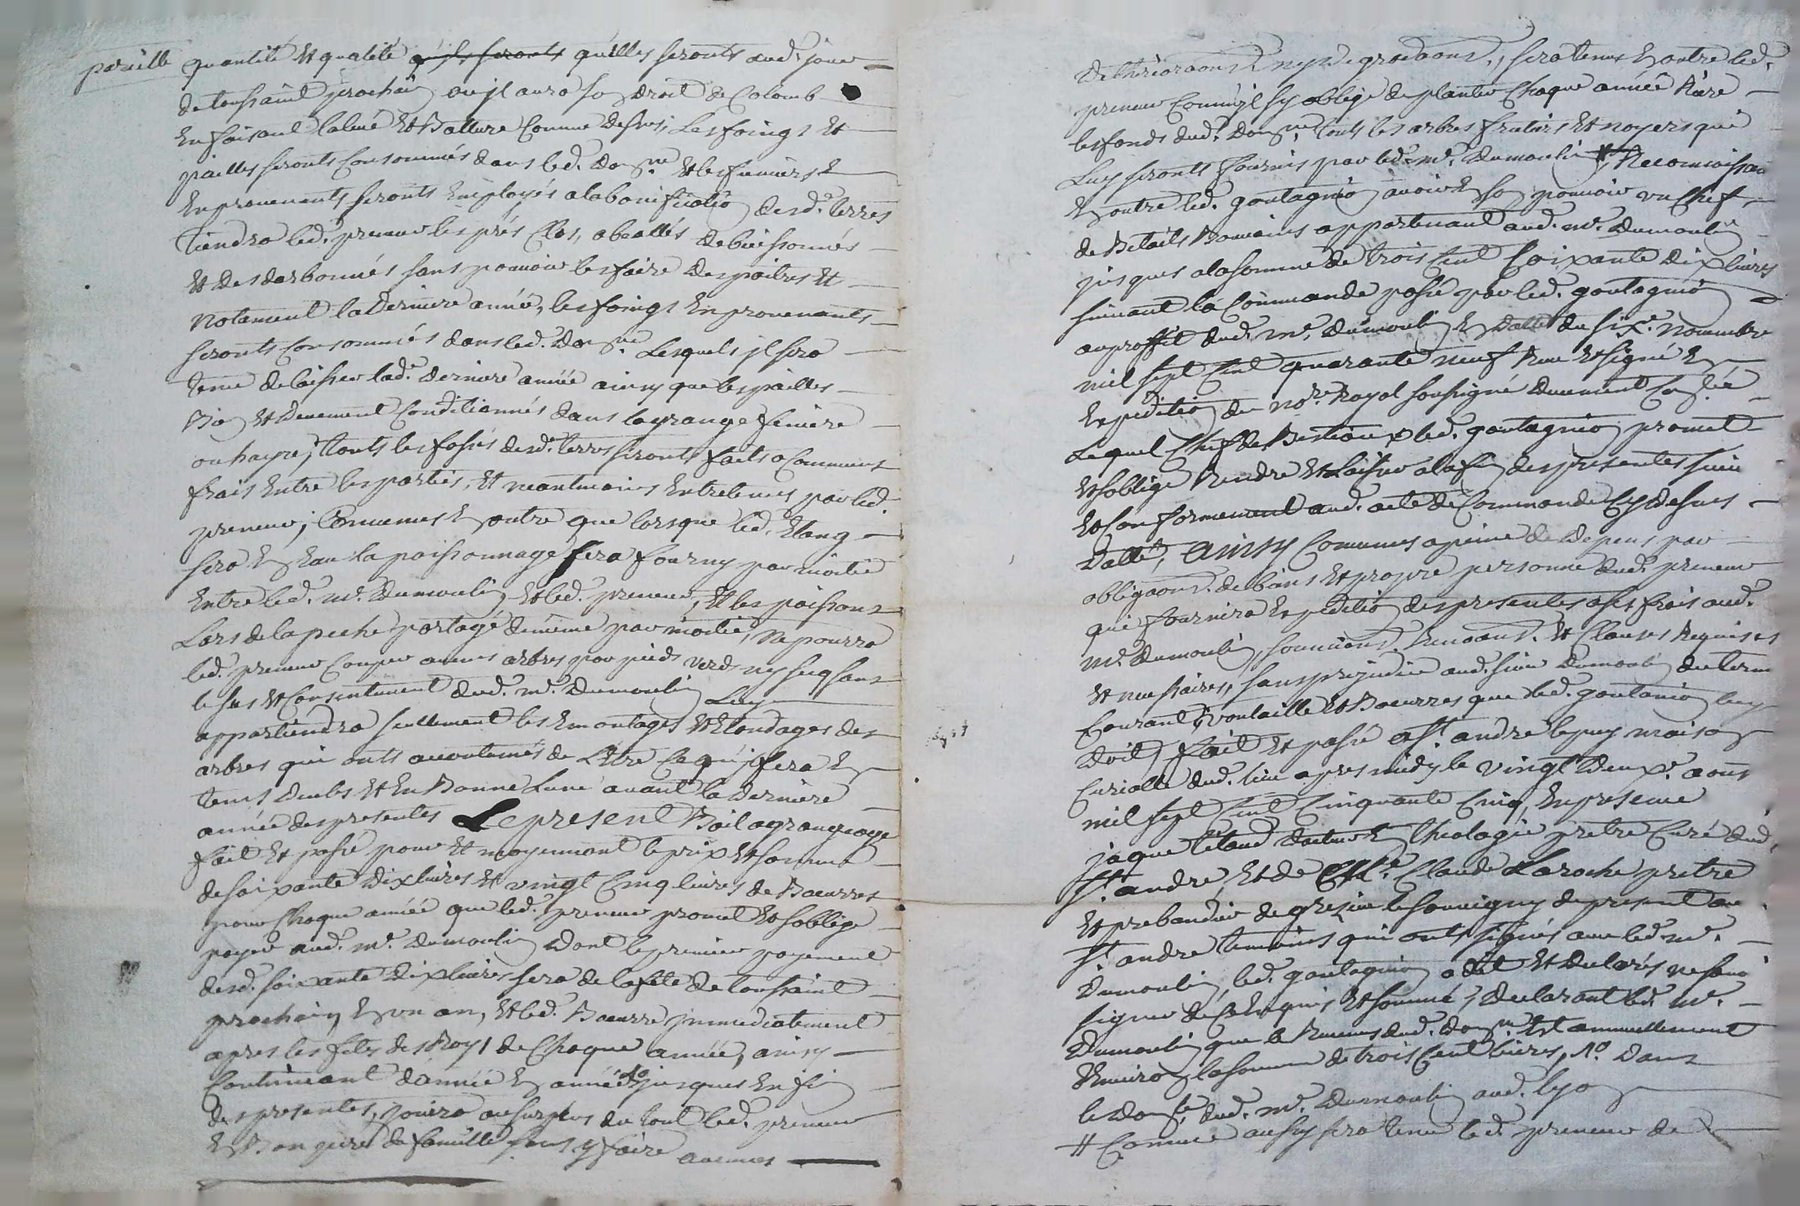 pareille quantité et qualité q'ils seronts qu'elles seronts aud. jour
de toussaint prochain ou jl aura son droit de Colomb
En faisant la levé Et Batture Comme dessus; Les foings Et
pailles seronts Consommés dans led. dom.ne Et les fumiers En
En provenants seronts Employés a la bonification desd. terres
tiendra led. preneur les prés Clos, abeallés debuissonnés
Et desdarbonnés sans pouvoir les faire despaitres Et
Notament la derniere année, les foings En provenants
seronts Consommés dans led. Dom.ne Lesquels jl sera
tenu de laisser lad. derniere année ainsy que les pailles
Bien Et deuement Conditionnés dans la grange feniere
ou ; touts les fossés desd. terres seronts faits a Communs
frais Entre les parties, Et neantmoins Entretenus par led.
preneur; Convenus En outre que lorsque led. Etang
sera En Eau la poissonnage sera fourny par moitié
Entre led. Mr. Dumoulin Et led. preneur, Et les poissons
Lors de la peche partagé de même par moitié, Ne pourra
led. preneur Couper aucuns arbres par pieds verds ny secq sans
le sus Et Consentement dud. Mr. Dumoulin Luy
appartiendra seullement les Emontages Et Elondages des
arbres qui onts accoutumés de L'être Ce qu'jl fera En
tems deubs Et En Bonne Lune avant la derniere
année des presentes Le present Bail a grangeage
fait Et passé pour Et moyennant le prix Et somme
de soixante dix livres Et vingt Cinq livres de Baeurres
pour Chaque année que led. preneur promet Et s'oblige
payer aud. Mr. Dumoulin Dont le premier payement
desd. soixante dix livres sera de la fête de toussaint
prochain En un an, Et led. Baeurre jmmediatement
apres les fêtes des Roys de Chaque année, ainsy
Continuant d'année En année jusques En fin
des presentes, Jouira au surplus du tout led. preneur
En Bon pere de famille sans y faire aucunes
dethérioraons ny degradaons, sera tenu En outre led.
preneur Comme jl s'y oblige de planter Chaque année Rière
les fonds dud. dom.ne touts les arbres fruitiers Et noyers qui
Luy seronts fournis par led. Mr. Dumoulin # Reconnoissant
En outre led. goutagnio avoir En son pouvoir un Chef
de Betails Romains appartenant aud. Mr. Dumoulin
jusques a la somme de trois Cent soixante dix livres
suivant la Commande passé par led. goutagnio
au proffit dud. Mr. Dumoulin En datte du six.e novembre
mil sept Cent quarante neuf Reue Et signé En
Expedition du no.re Royal soussigné duement Con.lée
Lequel Chef de Bestiaux led. goutagnio promet
Et s'oblige Rendre Et laisser a la fin des presentes
Et Conformement aud. acte de Commande Cy dessus
datté, ainsy Convenus a peine de depens par
obligaons de biens Et propre personne dud. preneur
qui fournira Expedition des presentes a ses frais aud.
Mr. Dumoulin, soumions Renoaons Et Clauses Requises
Et necessaires, sans prejudice aud. sieur Dumoulin du terme
Courant voulaille Et Baeurres que led. goutagnio luy
doit, fait Et passé a St. andré le puy maison
Curialle dud. lieu apres midy le vingt deux.e aoust
mil sept Cent Cinquante Cinq, En presence
jaque docteur En theologie prêtre Curé dud.
St. andré, Et de Claude Laroche pretre
Et prebandier de de present au
St. andré temoins qui onts signés avec led. Mr.
Dumoulin, led. goutagnio a dit Et declarés ne savoir
signer de Ce Enquis Et sommé, declarant led. Mr.
Dumoulin que le Revenus dud. dom.ne Est annuellement
Environ la somme de trois Cent livres, dans
le dom.ne dud. Mr. Dumoulin aud.
# Comme aussy sera tenu led. preneur de